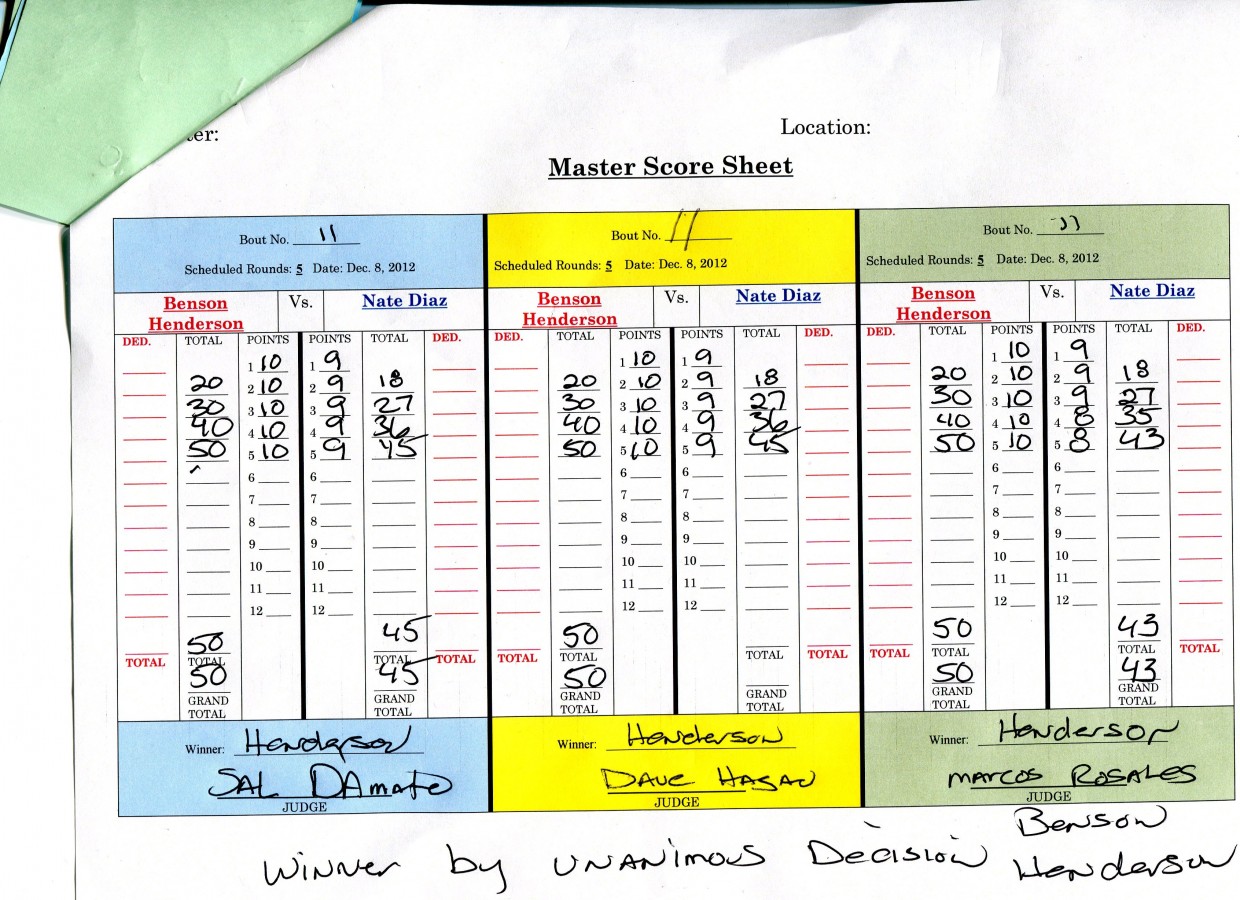 er:
Location:
Master Score Sheet
Bout No. 11
Scheduled Rounds: 5 Date: Dec. 8, 2012
Benson Vs. Nate Diaz
Henderson
DED. TOTAL POINTS POINTS TOTAL DED.
1 10 1 9
20 2 10 2 9 18
30 3 10 3 9 27
40 4 10 4 9 36
50 5 10 5 9 45
6 6
7 7
8 8
9 9
10 10
11 11
12 12
50 45
TOTAL TOTAL TOTAL TOTAL
50 45
GRAND GRAND
TOTAL TOTAL
Winner: Henderson
SAL DAmato
JUDGE
Bout No. 11
Scheduled Rounds: 5 Date: Dec. 8, 2012
Benson Vs. Nate Diaz
Henderson
DED. TOTAL POINTS POINTS TOTAL DED.
1 10 1 9
20 2 10 2 9 18
30 3 10 3 9 27
40 4 10 4 9 36
50 5 10 5 9 45
6 6
7 7
8 8
9 9
10 10
11 11
12 12
50
TOTAL TOTAL TOTAL TOTAL
50
GRAND GRAND
TOTAL TOTAL
Winner: Henderson
DAVE HAGAN
JUDGE
Bout No. 11
Scheduled Rounds: 5 Date: Dec. 8, 2012
Benson Vs. Nate Diaz
Henderson
DED. TOTAL POINTS POINTS TOTAL DED.
1 10 1 9
20 2 10 2 9 18
30 3 10 3 9 27
40 4 10 4 8 35
50 5 10 5 8 43
6 6
7 7
8 8
9 9
10 10
11 11
12 12
50 43
TOTAL TOTAL TOTAL TOTAL
50 43
GRAND GRAND
TOTAL TOTAL
Winner: Henderson
MARCOS ROSALES
JUDGE
Winner by UNANimous Decision Benson
Henderson